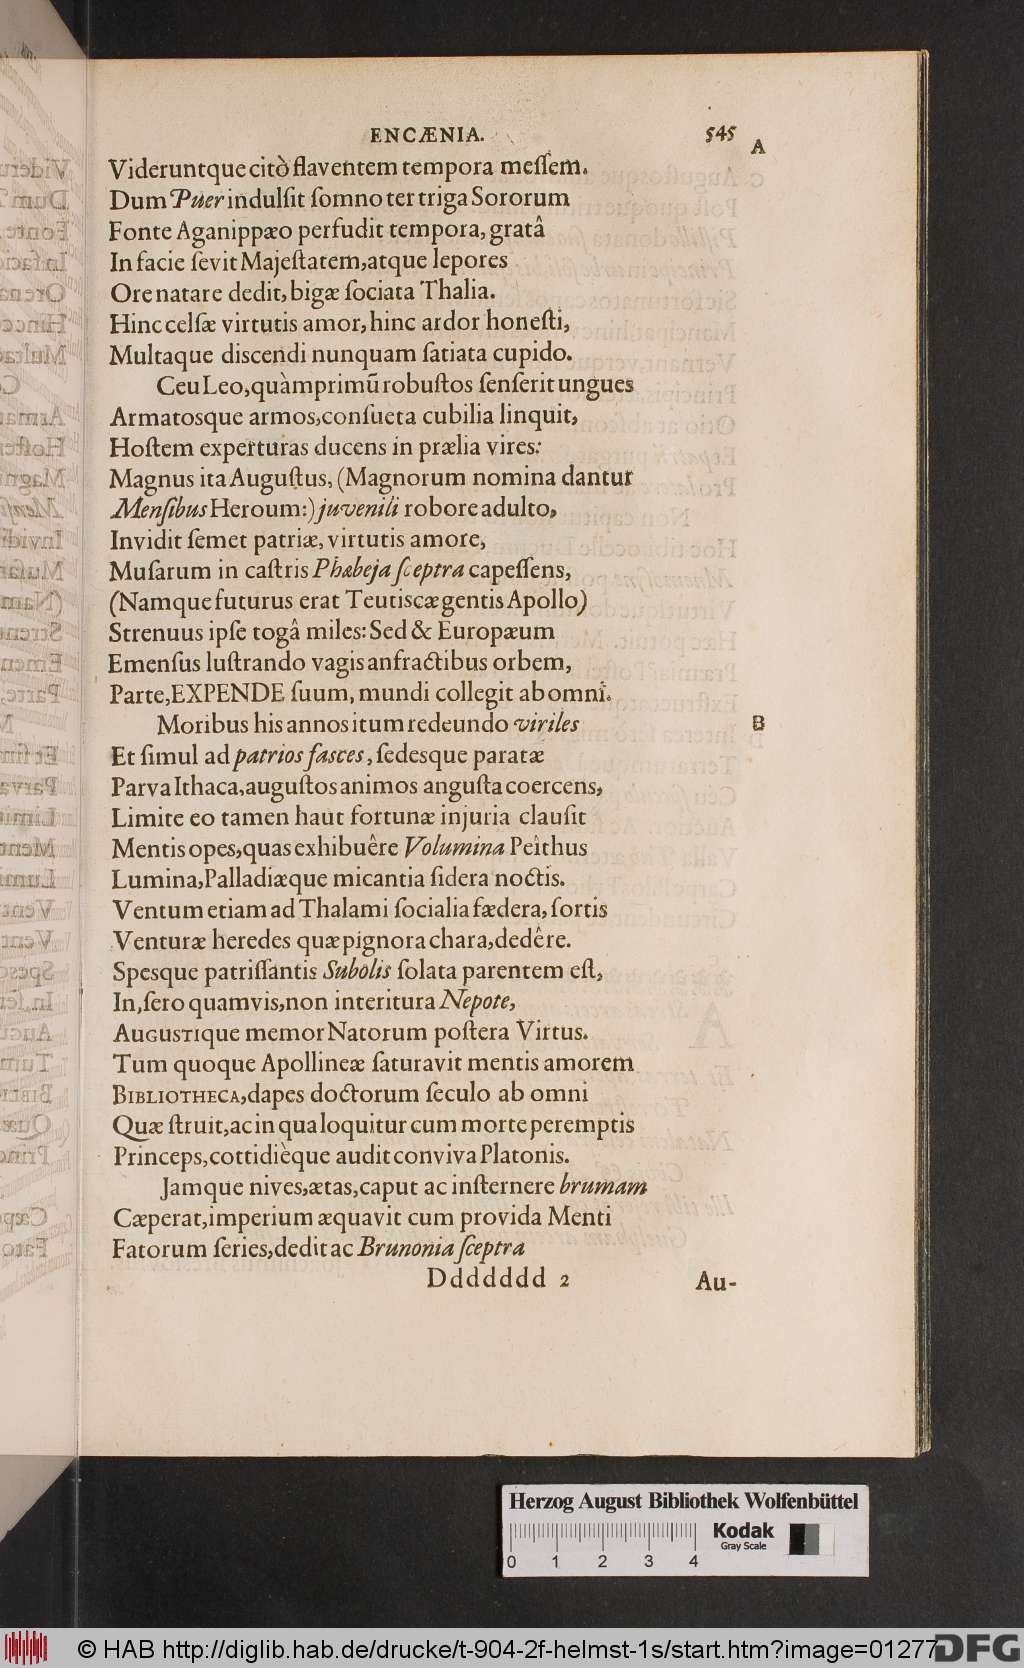 ENCÆNIA. 545
A
Videruntque citò flaventem tempora meſſem.
Dum Puer indulſit ſomno ter triga Sororum
Fonte Aganippæo perfudit tempora, gratâ
In facie ſevit Majeſtatem, atque lepores
Ore natare dedit, bigæ ſociata Thalia.
Hinc celſæ virtutis amor, hinc ardor honeſti,
Multaque discendi nunquam ſatiata cupido.
Ceu Leo, quàm primũ robuſtos ſenſerit ungues
Armatosque armos, conſueta cubilia linquit,
Hoſtem experturas ducens in prælia vires:
Magnus ita Auguſtus, (Magnorum nomina dantur
Menſibus Heroum:) juvenili robore adulto,
Invidit ſemet patriæ, virtutis amore,
Muſarum in caſtris Phœbeja ſceptra capeſſens,
(Namque futurus erat Teutiscæ gentis Apollo)
Strenuus ipſe togâ miles: Sed & Europæum
Emenſus luſtrando vagis anfractibus orbem,
Parte, EXPENDE ſuum, mundi collegit ab omni.
Moribus his annos itum redeundo viriles
B
Et ſimul ad patrios faſces, ſedesque paratæ
Parva Ithaca, auguſtos animos anguſta coercens,
Limite eo tamen haut fortunæ injuria clauſit
Mentis opes, quas exhibuêre Volumina Peithus
Lumina, Palladiæque micantia ſidera noctis.
Ventum etiam ad Thalami ſocialia fædera, fortis
Venturæ heredes quæ pignora chara, dedêre.
Spesque patriſſantis Subolis ſolata parentem eſt,
In, ſero quamvis, non interitura Nepote,
AUGUSTIque memor Natorum poſtera Virtus.
Tum quoque Apollineæ ſaturavit mentis amorem
BIBLIOTHECA, dapes doctorum ſeculo ab omni
Quæ ſtruit, ac in qua loquitur cum morte peremptis
Princeps, cottidièque audit conviva Platonis.
Jamque nives, ætas, caput ac inſternere brumam
Cæperat, imperium æquavit cum provida Menti
Fatorum ſeries, dedit ac Brunonia ſceptra
Ddddddd 2 Au-
Herzog August Bibliothek Wolfenbüttel
Kodak
Gray Scale
0 1 2 3 4
© HAB http://diglib.hab.de/drucke/t-904-2f-helmst-1s/start.htm?image=01277
DFG